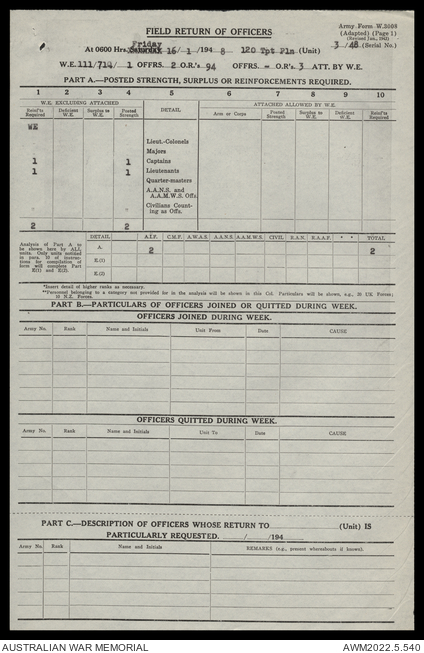 Army Form W.3008
(Adapted) (Page 1)
(Revised Jan., 1942)
FIELD RETURN OF OFFICERS
Friday
At 0600 Hrs. Saturday 16/1/1948 120 Tpt Pln (Unit) 3/48 (Serial No.)
W.E. 111/714/ 1 OFFRS. 2 O.R's 94 OFFRS. - O.R's 3 ATT. BY W.E.
PART A.—POSTED STRENGTH, SURPLUS OR REINFORCEMENTS REQUIRED.
1 2 3 4 5 6 7 8 9 10
W.E. EXCLUDING ATTACHED DETAIL ATTACHED ALLOWED BY W.E.
Reinf'ts Required Deficient W.E. Surplus to W.E. Posted Strength Arm or Corps Posted Strength Surplus to W.E. Deficient W.E. Reinf'ts Required
WE
Lieut.-Colonels
Majors
1 1 Captains
1 1 Lieutenants
Quarter-masters
A.A.N.S. and
A.A.M.W.S. Offs.
Civilians Count-
ing as Offs.
2 2
Analysis of Part A to be shown here by ALL units. Only units outlined in para. 10 of instructions for compilation of form will complete Part E(1) and E(2).
DETAIL A.I.F. C.M.F. A.W.A.S. A.A.N.S. A.A.M.W.S. CIVIL R.A.N. R.A.A.F. * * TOTAL
A. 2 2
E.(1)
E.(2)
*Insert detail of higher ranks as necessary.
*Personnel belonging to a category not provided for in the analysis will be shown in this Col. Particulars will be shown, e.g., 20 UK Forces;
10 N.Z. Forces.
PART B.—PARTICULARS OF OFFICERS JOINED OR QUITTED DURING WEEK.
OFFICERS JOINED DURING WEEK.
Army No. Rank Name and Initials Unit From Date CAUSE
OFFICERS QUITTED DURING WEEK.
Army No. Rank Name and Initials Unit To Date CAUSE
PART C.—DESCRIPTION OF OFFICERS WHOSE RETURN TO (Unit) IS
PARTICULARLY REQUESTED. / /194
Army No. Rank Name and Initials REMARKS (e.g., present whereabouts if known).
AUSTRALIAN WAR MEMORIAL AWM2022.5.540